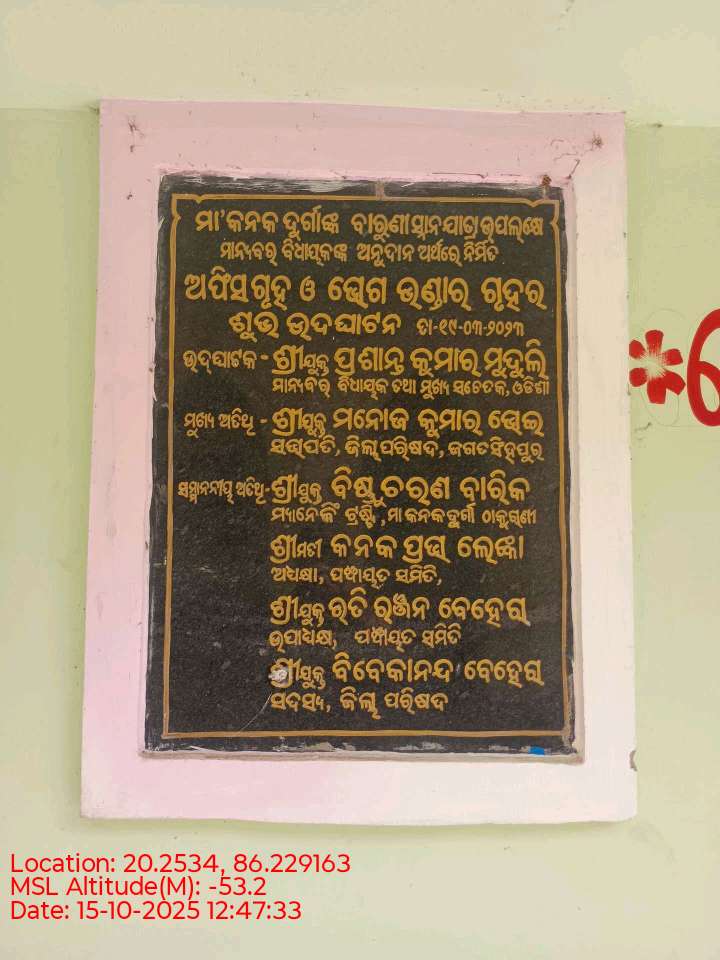 ମା'କନକ ଦୁର୍ଗାଙ୍କ ବାରୁଣୀସ୍ନାନଯାତ୍ରା ଉପଲକ୍ଷେ
ମାନ୍ୟବର ବିଧାୟକଙ୍କ ଅନୁଦାନ ଅର୍ଥରେ ନିର୍ମିତ
ଅଫିସ ଗୃହ ଓ ଭୋଗ ଭଣ୍ଡାର ଗୃହର
ଶୁଭ ଉଦଘାଟନ ତା-୧୯-୦୩-୨୦୨୩
ଉଦ୍‌ଘାଟକ - ଶ୍ରୀଯୁକ୍ତ ପ୍ରଶାନ୍ତ କୁମାର ମୁଦୁଲି
ମାନ୍ୟବର ବିଧାୟକ ତଥା ମୁଖ୍ୟ ସଚେତକ, ଓଡିଶା
ମୁଖ୍ୟ ଅତିଥି - ଶ୍ରୀଯୁକ୍ତ ମନୋଜ କୁମାର ଭୋଇ
ସଭାପତି, ଜିଲ୍ଲା ପରିଷଦ, ଜଗତସିଂହପୁର
ସମ୍ମାନନୀୟ ଅତିଥି - ଶ୍ରୀଯୁକ୍ତ ବିଷ୍ଣୁ ଚରଣ ବାରିକ
ମ୍ୟାନେଜିଂ ଟ୍ରଷ୍ଟି, ମା କନକ ଦୁର୍ଗା ଠାକୁରାଣୀ
ଶ୍ରୀମତୀ କନକ ପ୍ରଭା ଲେଙ୍କା
ଅଧ୍ୟକ୍ଷା, ପଞ୍ଚାୟତ ସମିତି,
ଶ୍ରୀଯୁକ୍ତ ରତି ରଞ୍ଜନ ବେହେରା
ଉପାଧ୍ୟକ୍ଷ, ପଞ୍ଚାୟତ ସମିତି
ଶ୍ରୀଯୁକ୍ତ ବିବେକାନନ୍ଦ ବେହେରା
ସଦସ୍ୟ, ଜିଲ୍ଲା ପରିଷଦ
Location: 20.2534, 86.229163
MSL Altitude(M): -53.2
Date: 15-10-2025 12:47:33